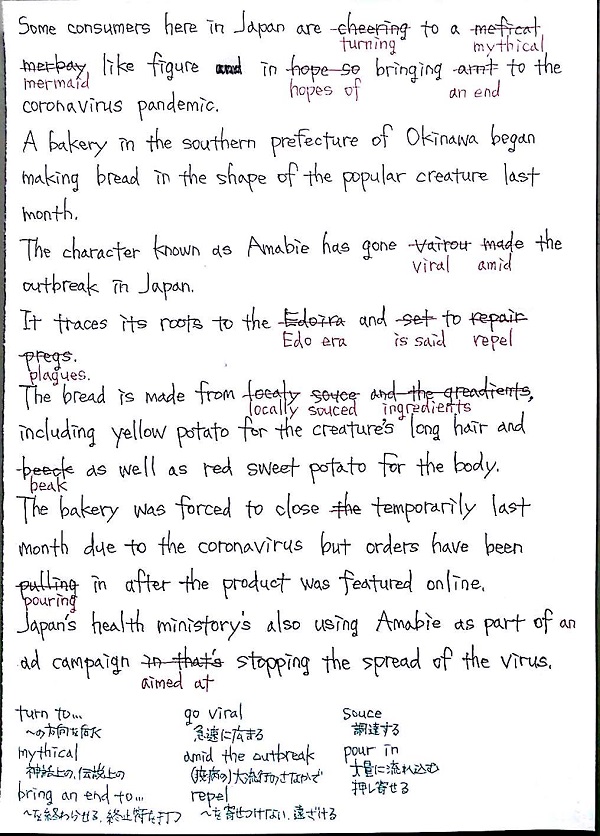 Some consumers here in Japan are cheering to a mefical
turning mythical
merbay like figure and in hope so bringing amt to the
mermaid hopes of an end
coronavirus pandemic.
A bakery in the southern prefecture of Okinawa began
making bread in the shape of the popular creature last
month.
The character known as Amabie has gone vairou made the
viral amid
outbreak in Japan.
It traces its roots to the Edoira and set to repair
Edo era is said repel
pregs.
plagues.
The bread is made from localy souce and the greadients,
locally souced ingredients
including yellow potato for the creature's long hair and
beeck as well as red sweet potato for the body.
beak
The bakery was forced to close the temporarily last
month due to the coronavirus but orders have been
pulling in after the product was featured online.
pouring
Japan's health ministory's also using Amabie as part of an
ad campaign in that's stopping the spread of the virus.
aimed at
turn to... go viral souce
〜の方向を向く 急速に広まる 調達する
mythical amid the outbreak pour in
神話上の、伝説上の (疫病の)大流行のさなかで 大量に流れ込む
bring an end to... repel 押し寄せる
〜を終わらせる、終止符を打つ 〜を寄せつけない、遠ざける